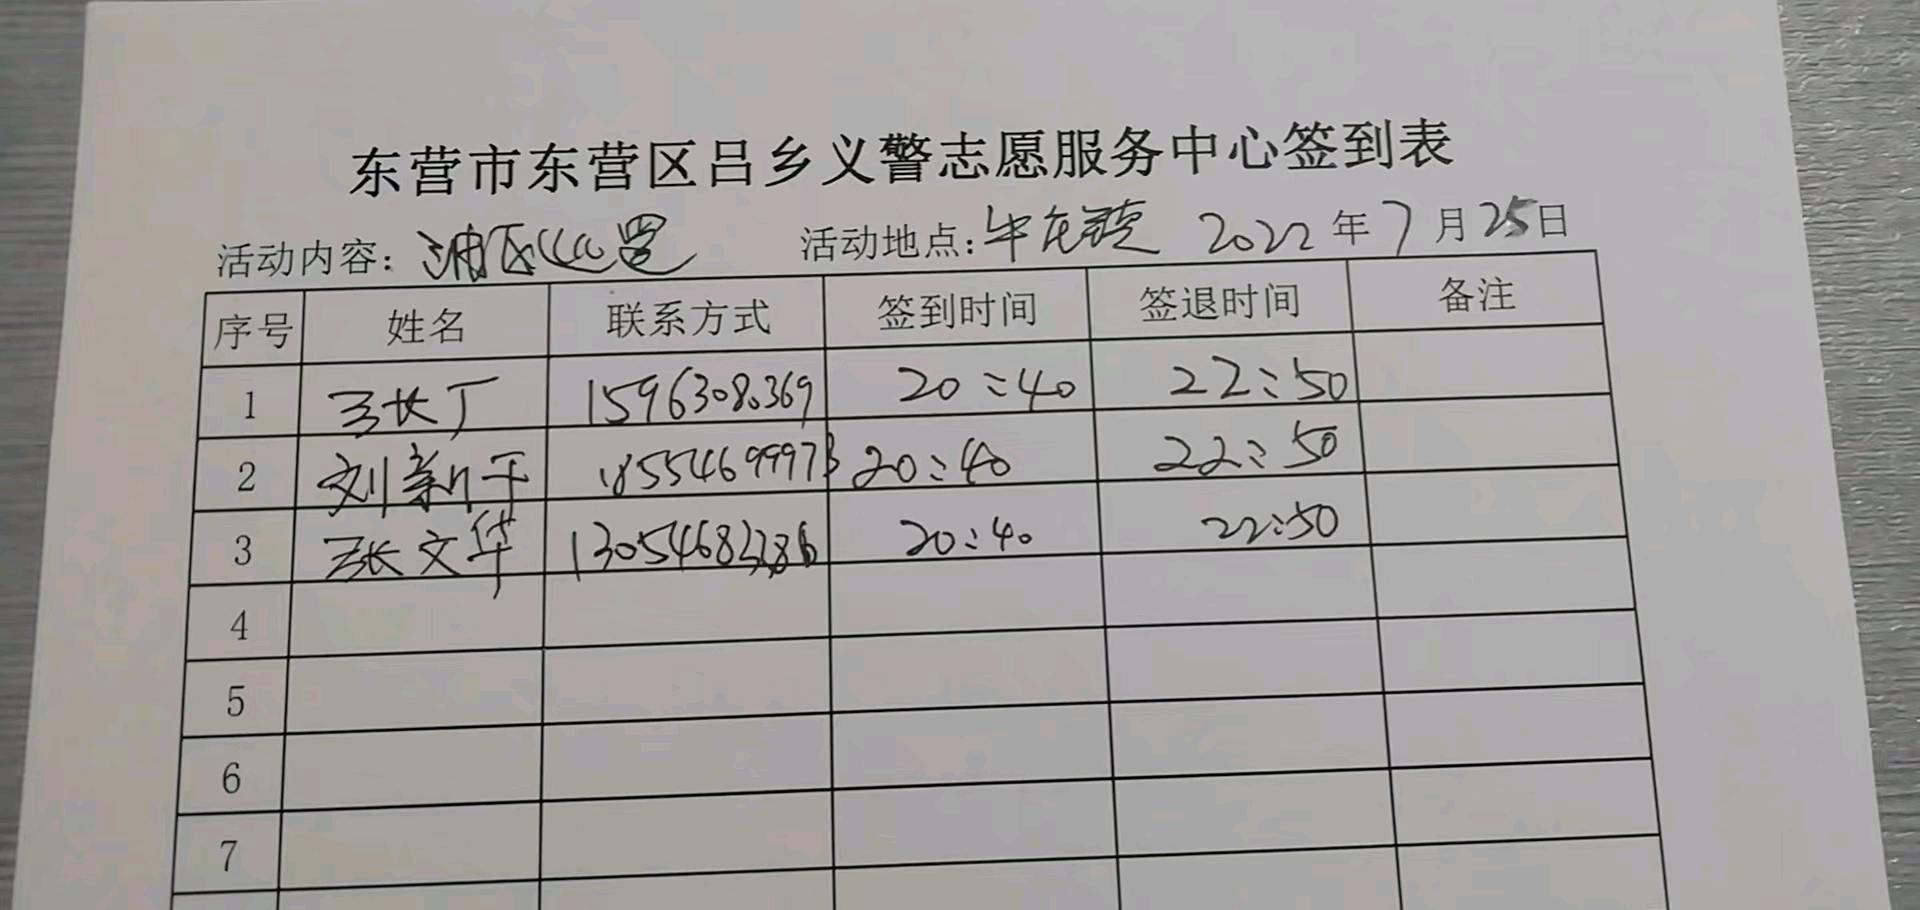 东营市东营区吕乡义警志愿服务中心签到表
活动内容： 活动地点：牛庄镇 2022年7月25日
序号 姓名 联系方式 签到时间 签退时间 备注
1 15963080369 20:40 22:50
2 刘新干 18554699973 20:40 22:50
3 张文华 20:40 22:50
4
5
6
7